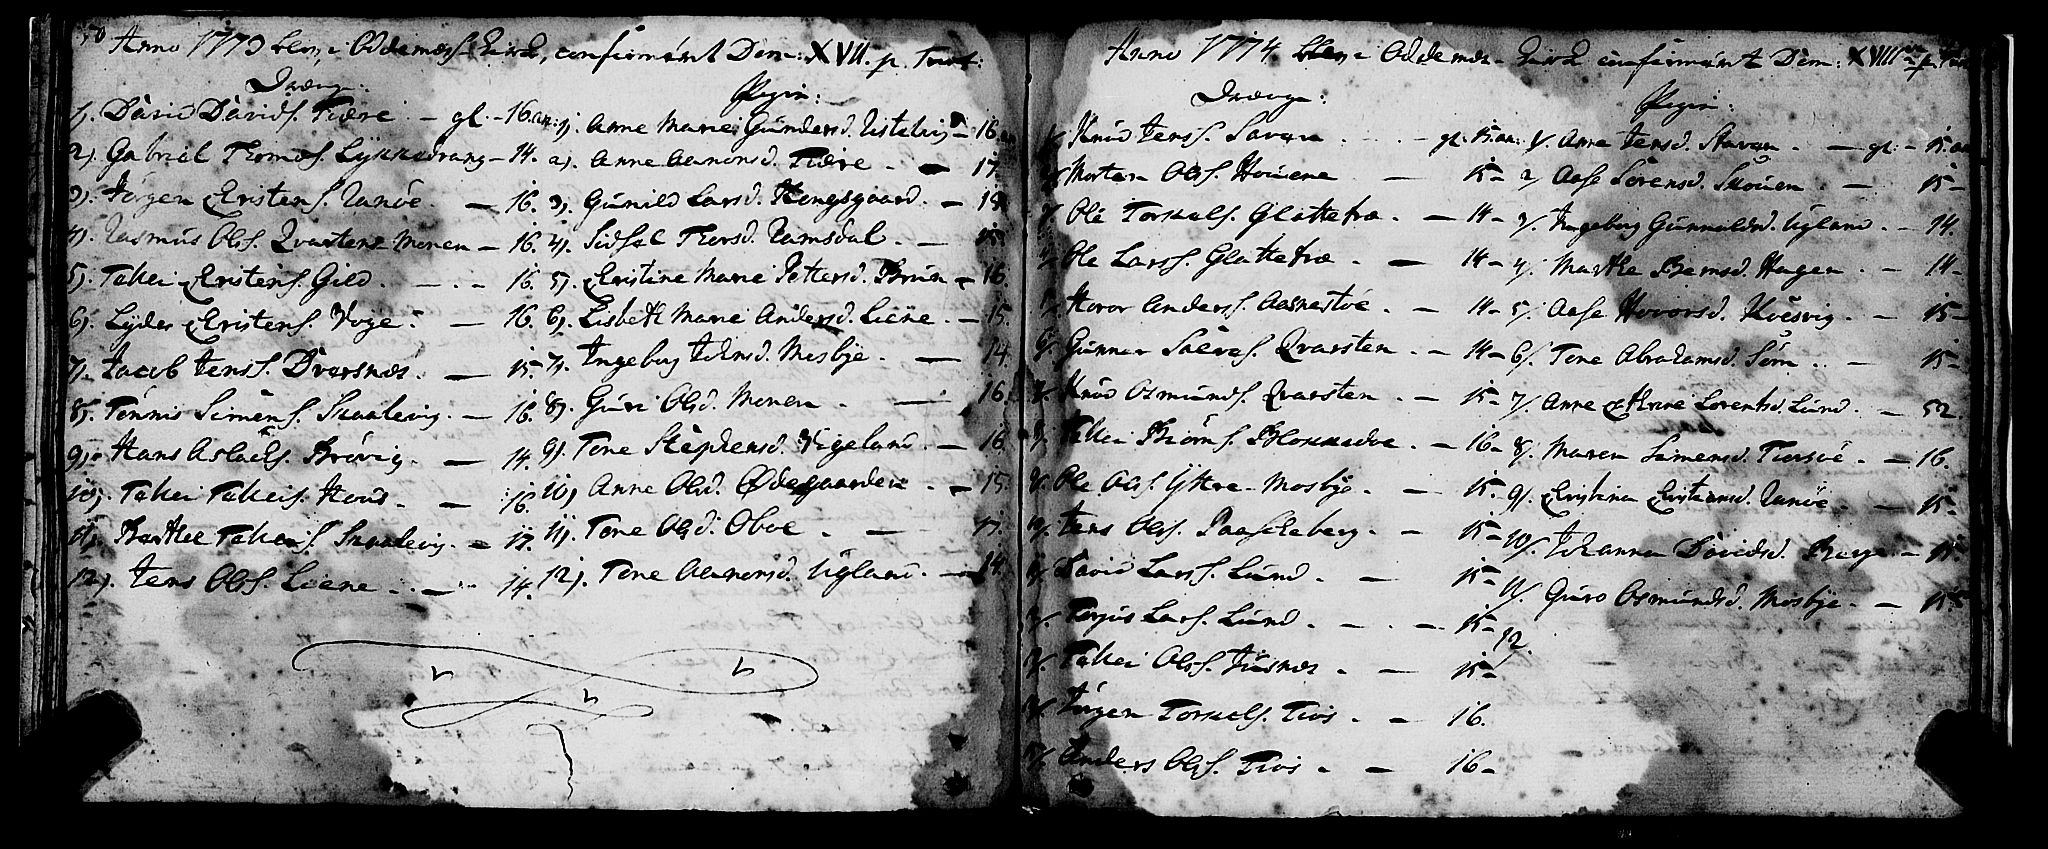 50 Anno 1773 blev i Oddernæs Kirke, confirmeret Dom: XVII. p. Trin:
Drænge:
1). David Davids. Tiære. - gl. - 16. an:
2). Gabriel Thomas. Lykkedrang - 14.
3). Jörgen Cristens. Ranöe. - 16.
4). Rasmus Ols. Qvartens Monen - 16.
5). Takei Cristens. Gild. - 16.
6). Lyder Cristens. Voge. - 16.
7). Jacob Jens S. Dvarsnæs. - 15.
8). Tönnis Simens. Skaalevig. - 16.
9). Hans Aslachs. Brövig. - 14.
10). Takei Takeis. Hous. - 16.
11). Barthel Takeis. Skaalevig. - 17.
12). Jens Ols. Liene. - 14.
Pigin:
1). Anne Marie Gundersd. Ristelvig - 16. an
2). Anne Aanonsd. Tiære - 17.
3). Gunild Larsd. Kongsgaard. - 18.
4). Sidsel Thorsd. Ramsdal. - 15.
5). Cristine Marie Pettersd. Bruun - 16.
6). Lisbeth Marie Andersd. Liene. - 15.
7). Ingebor Johnsd. Mosbye. - 14.
8). Guri Olsd. Monen. - 16.
9). Tone Stephensd. Vigeland. - 16.
10). Anne Olsd. Ødegaarden. - 15.
11). Tone Olsd. Oboe. - 17.
12). Tone Aanonsd. Ugland. - 14.
Anno 1774 blev i Oddernæs - Kirke confirmeret Dom: XVIII p. Trin
Drænge:
1/. Knud Jens S. Savan - gl. 15. an:
2/. Morten Ols S. Houene - 15 -
3/. Ole Torkels S. Glattetræ. - 14 -
4/. Ole Lars S. Glattetræ. - 14 -
5/. Hovor Anders S. Aasnestöe. - 14 -
6/. Gunner Salves. Qvarsten. - 14 -
7/. Knud Osmunds. Qvarsten. - 15 -
8/. Takei Biörns. Blokkadoe. - 16 -
9/. Ole Ols S. Ytre-Mosbye. - 15 -
10/. Jens Ols S. Paaskeberg. - 15 -
11/. David Lars S. Lund. - 15 -
12/. Terjus Lars. Lund. - 15 -
13/. Takei Ols S. Justnæs - 15 -
14/. Jörgen Torkels. Tvis. - 16.
15/. Anders Ols S. Tvis. - 16 -
Pigin:
1/. Anne Jensd. Stavan. - gl: - 15. an
2/. Aase Sörensd. Skouen. - 15 -
3/. Ingeborg Gunnuldsd. Ugland. - 14.
4/. Marthe Bernsd. Hagen. - 14 -
5/. Aase Hovorsd. Koesvig. - 15 -
6/. Tone Abrahamsd. Söm. - 15 -
7/. Anne Cathrine Lorentsd. Lund. - 52.
8/. Maren Simensd. Tiorsöe. - 16.
9/. Cristina Cristiansd. Ranöe. - 15 -
10/. Johanna Davidsd. Berge - 15.
11/. Guro Osmundsd. Mosbye. - 15 -
12.